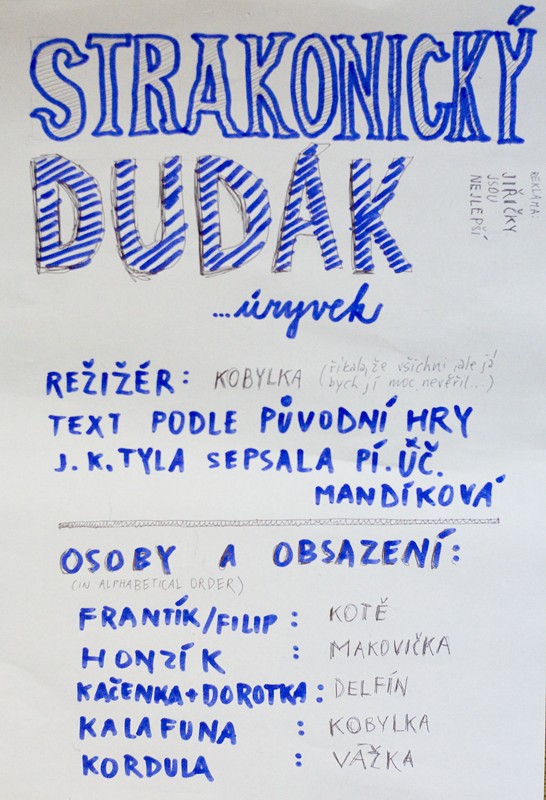 STRAKONICKÝ
DUDÁK
...úryvek
REKLAMA:
JIŘIČKY
JSOU
NEJLEPŠÍ
REŽIŽÉR: KOBYLKA (říkala, že všichni, ale já
bych jí moc nevěřil...)
TEXT PODLE PŮVODNÍ HRY
J.K.TYLA SEPSALA PÍ. UČ.
MANDÍKOVÁ
OSOBY A OBSAZENÍ:
(IN ALPHABETICAL ORDER)
FRANTÍK/FILIP : KOTĚ
HONZÍK : MAKOVIČKA
KAČENKA+DOROTKA: DELFÍN
KALAFUNA : KOBYLKA
KORDULA : VÁŽKA